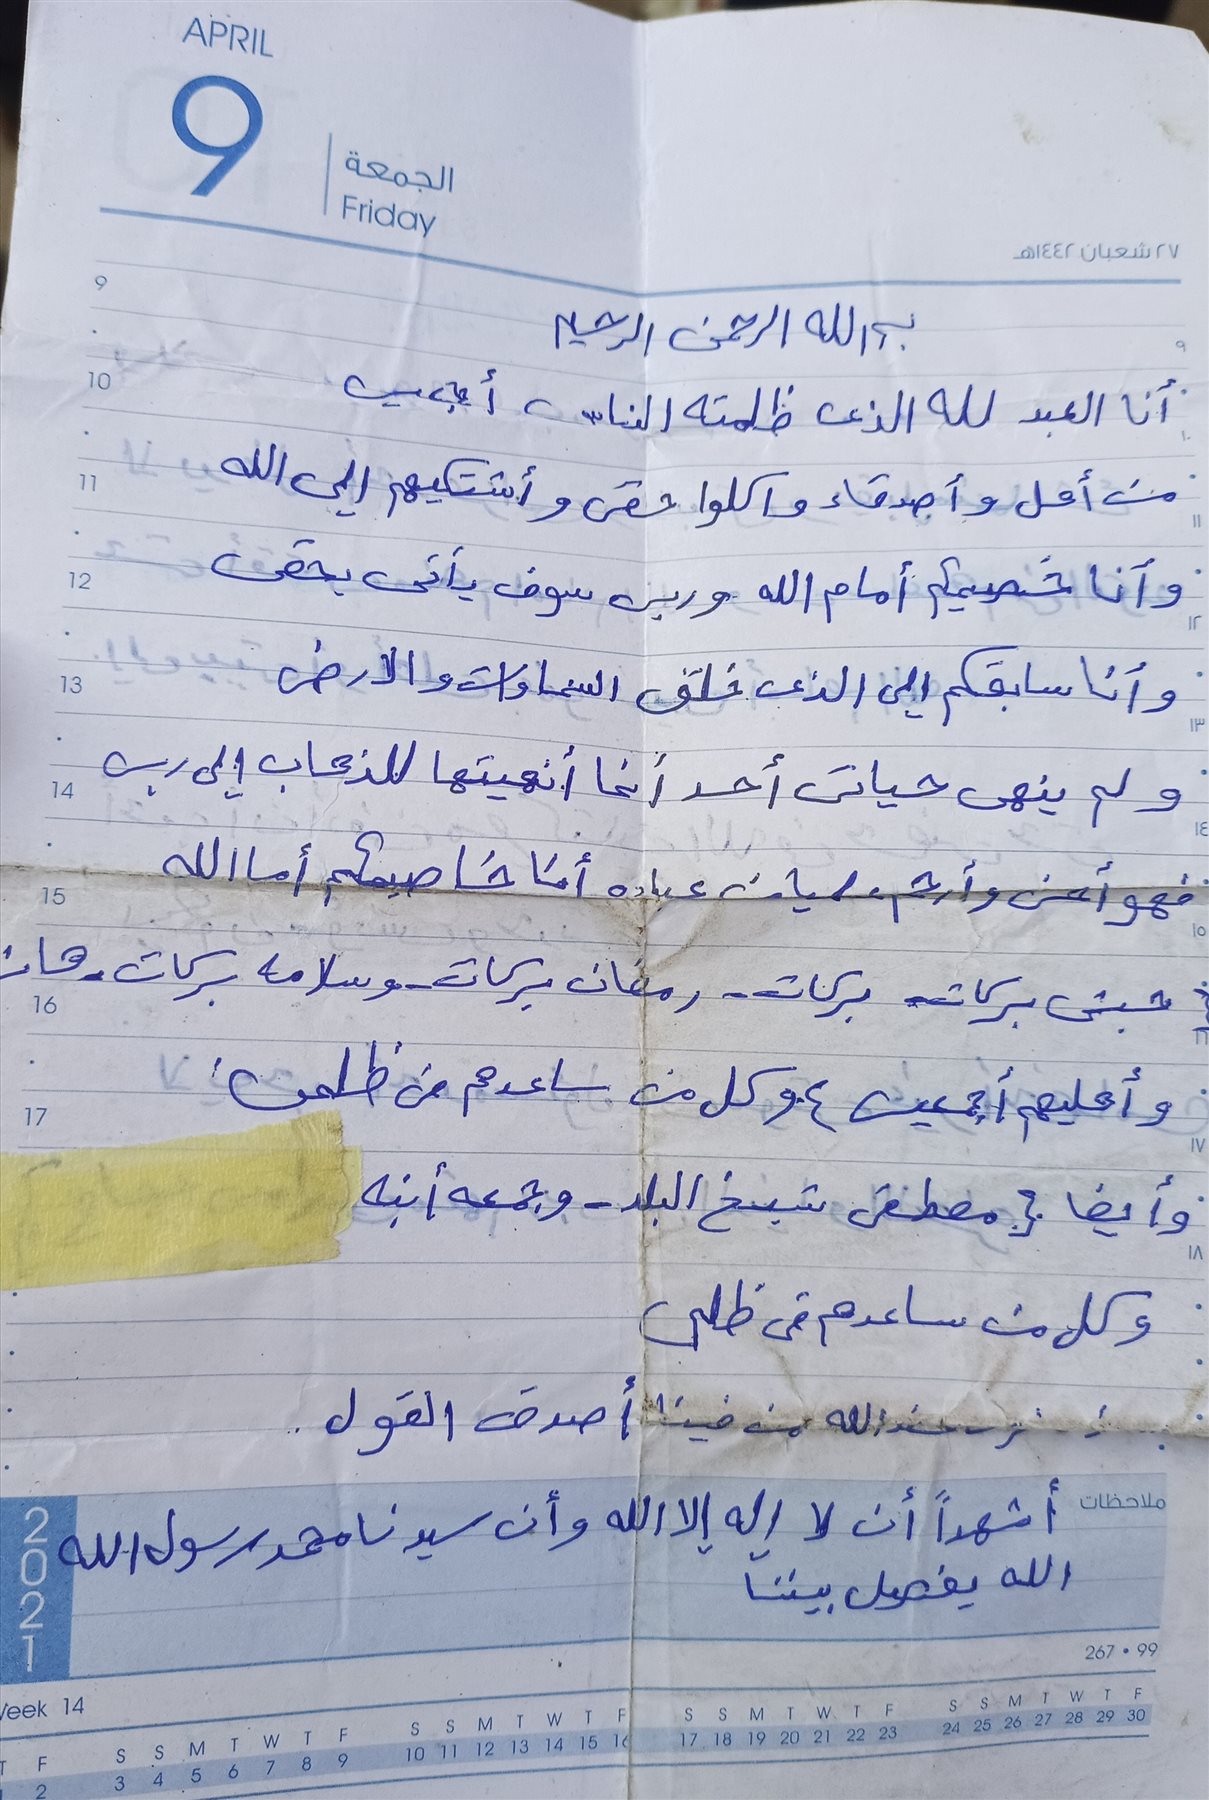 APRIL
9
الجمعة
Friday
٢٧ شعبان ١٤٤٢هـ
بسم الله الرحمن الرحيم
9
٩
أنا العبد لله الذى ظلمته الناس أجمعين
10
١٠
من أهل وأصدقاء واكلوا حقى وأشتكيهم الى الله
11
١١
وأنا خصيمكم أمام الله وربى سوف يأتى بحقى
12
١٢
وأنا سابقكم الى الذى خلق السماوات والارض
13
١٣
ولم ينهى حياتى أحد أنما أنهيتها للذهاب إلى ربى
14
١٤
فهو أحن وأرحم من عباده أنا خاصيمكم أما الله
15
١٥
حبشى بركات - بركات - رمضان بركات - وسلامه بركات -
16
١٦
وأهليهم أجمعين وكل من ساعدهم فى ظلمى
17
١٧
وأيضا مصطفى شيخ البلد - وجمعه أبنه
١٨
وكل من ساعدهم فى ظلمى
الله من فينا أصدق القول
ملاحظات
أشهداً أن لا إله إلا الله وأن سيدنا محمد رسول الله
الله يفصل بيننا
2021
267 • 99
Week 14
T F S S M T W T F S S M T W T F S S M T W T F S S M T W T F
2 3 4 5 6 7 8 9 10 11 12 13 14 15 16 17 18 19 20 21 22 23 24 25 26 27 28 29 30